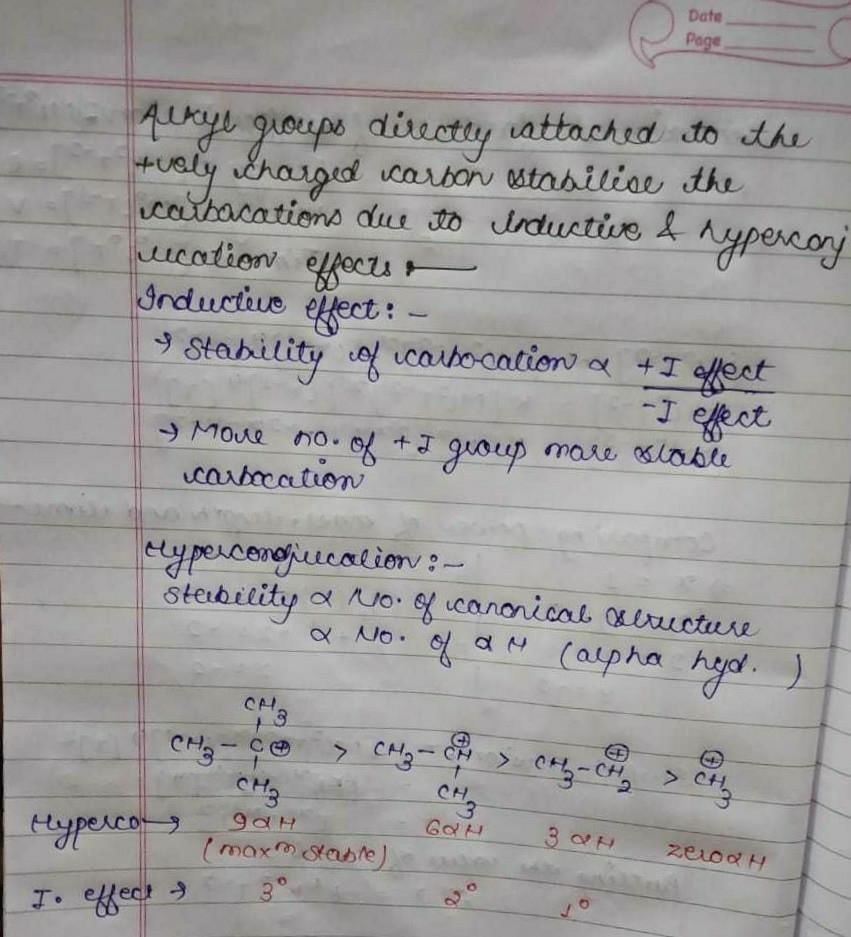 Date
Page
Alkyl groups directly attached to the
+vely charged carbon stabilise the
carbocations due to Inductive & hyperconj
ucation effects :—
Inductive effect :-
→ Stability of carbocation α +I effect
-I effect
→ More no. of +I group more stable
carbocation
Hyperconjucation :-
Stability α No. of canonical structure
α No. of α H (alpha hyd. )
CH3
CH3 - C⊕ > CH3 - CH⊕ > CH3-CH2⊕ > CH3⊕
CH3 CH3
Hyperco → 9αH 6αH 3αH zeroαH
(maxm stable)
I. effect → 3° 2° 1°